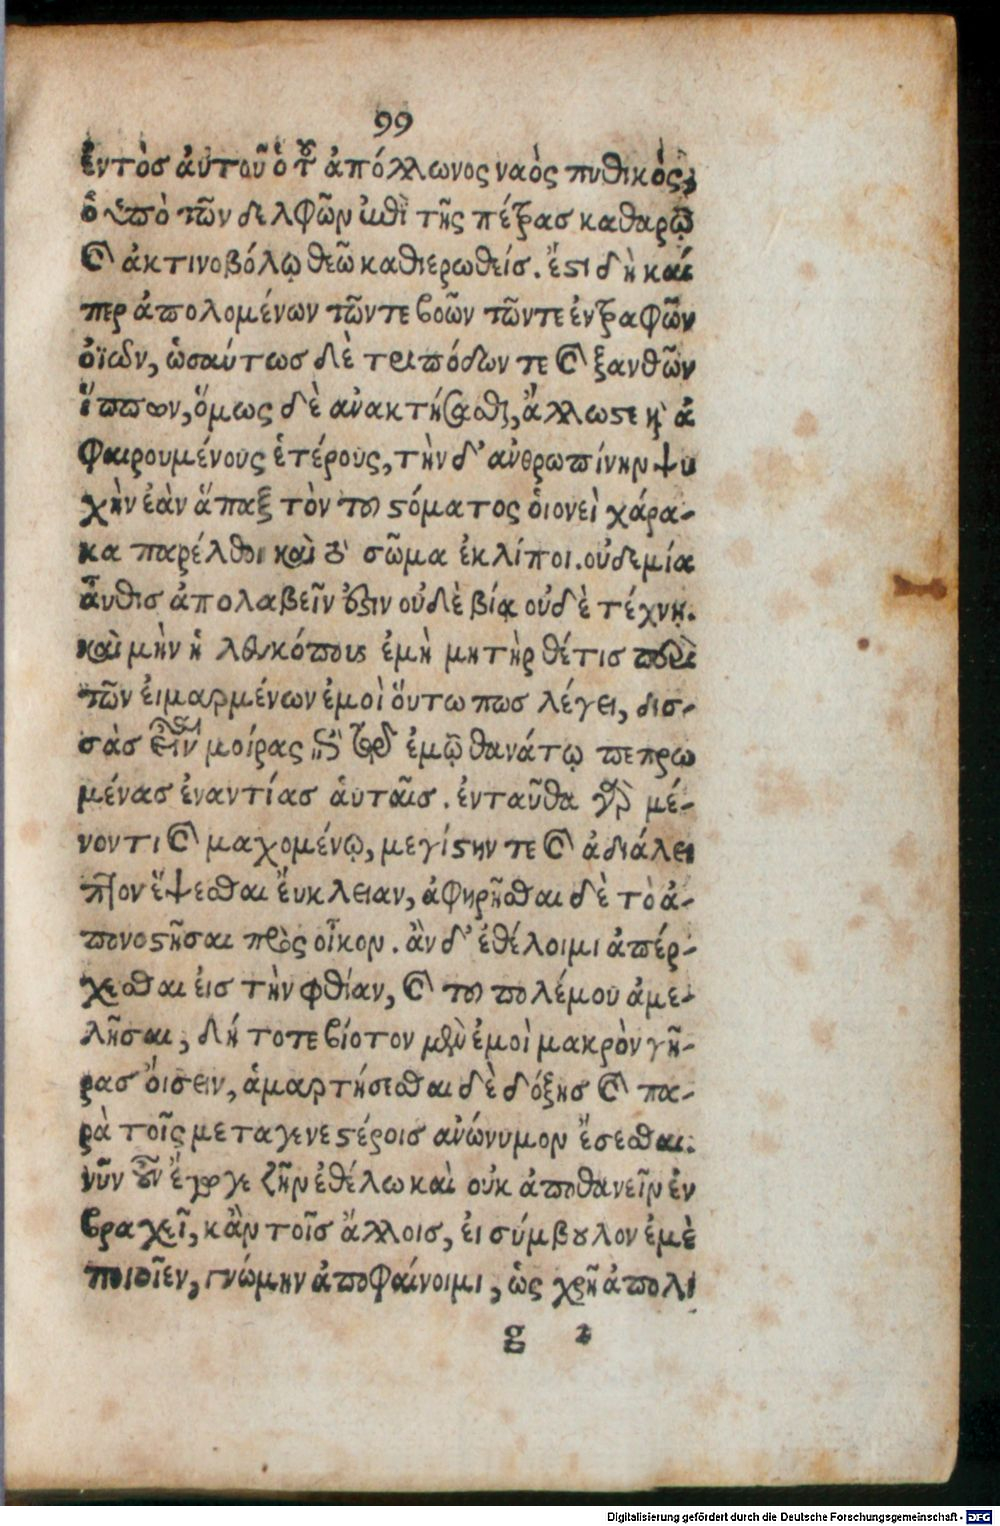 99
ἐντὸσ ἀυτοῦ ὁ τ͂ ἀπόλλωνος ναὸς πυθικὸς,
ὁ ὑπὸ τῶν δελφῶν ἐπὶ τῆς πέτρας καθαρῷ
καὶ ἀκτινοβόλῳ θεῶ καθιερωθείσ. ἔστι δὴ καί
περ ἀπολομένων τῶντε βοῶν τῶντε ἐντραφῶν
ὀϊων, ὡσαύτωσ δὲ τριπόδων τε καὶ ξανθῶν
ἵππων, ὅμως δὲ ἀνακτήσασθαι, ἄλλωστε κὶ ἀ
φαιρουμένους ἑτέρους, τὴν δ’ ἀνθρωπίνην ψυ
χὴν ἐὰν ἅπαξ τὸν τοῦ στόματος ὁιονεὶ χάρα-
κα παρέλθοι καὶ τὸ σῶμα ἐκλίποι. οὐδεμία
ἆυθισ ἀπολαβεῖν ὄξιν οὐδὲ βίᾳ οὐδὲ τέχνῃ.
καὶ μὴν ἡ λευκόπους ἐμὴ μητὴρ θέτισ περὶ
τῶν ἐιμαρμένων ἐμοὶ ὅυτω πωσ λέγει, δισ-
σὰσ εἶναι μοίρας ἐμῷ θανάτῳ πεπρω
μένασ ἐναντίασ ἁυταῖσ. ἐνταῦθα γὰρ μέ-
νοντι καὶ μαχομένῳ, μεγίστην τε καὶ ἀδιάλει
πτον ἕψεσθαι ἔυκλειαν, ἀφηρῆσθαι δὲ τὸ ἀ-
πονοστῆσαι πρὸς οἶκον. ἂν δ’ ἐθέλοιμι ἀπέρ-
χεσθαι ἐισ τὴν φθίαν, καὶ τοῦ πολέμου ἀμε-
λῆσαι, δή τοτε βίοτον μὲν ἐμοὶ μακρὸν γῆ-
ρασ ὄισειν, ἁμαρτήσεσθαι δὲ δόξησ καὶ πα-
ρὰ τοῖς μεταγενεστέροισ ἀνώνυμον ἔσεσθαι.
νῦν οὖν ἔγωγε ζῆν ἐθέλω καὶ οὐκ ἀποθανεῖν ἐν
βραχεῖ, κἂν τοῖσ ἄλλοισ, ἐι σύμβουλον ἐμὲ
ποιοῖεν, γνώμην ἀποφαίνοιμι, ὡς χρὴ ἀπολι
g 2
Digitalisierung gefördert durch die Deutsche Forschungsgemeinschaft - DFG